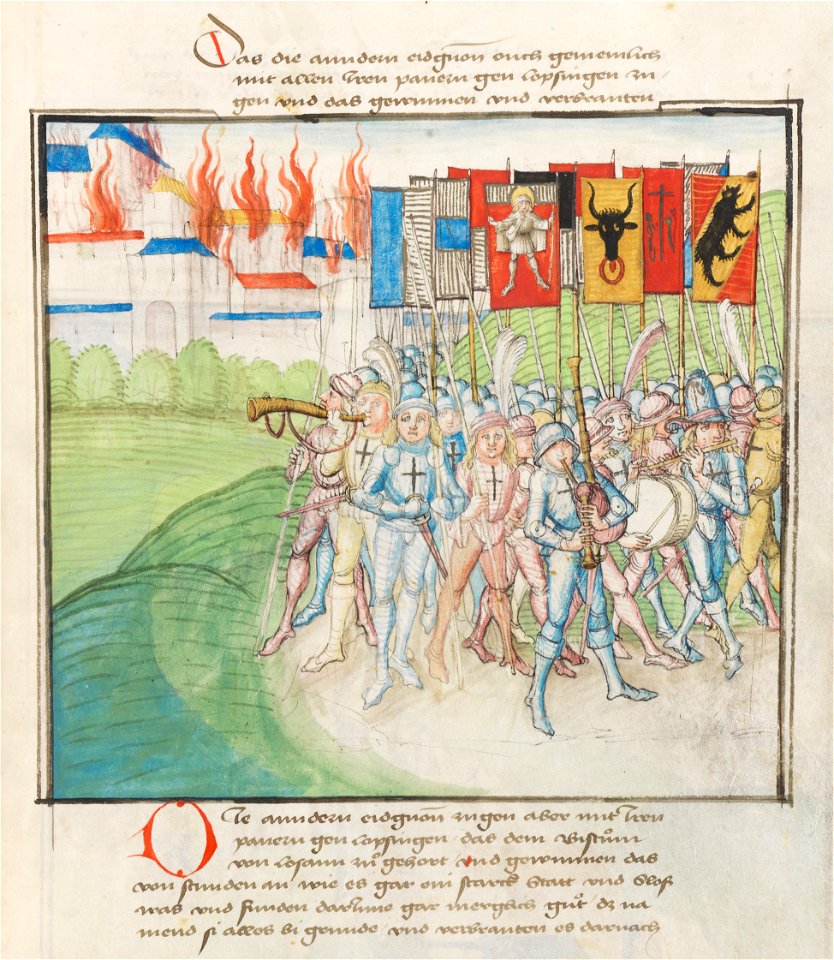 Das die anndern eidgnon ouch gemeinlich
mit allen iren panern gen lopsingen zu
gen und das gewunnen und verbranten
Die anndern eidgnon zugen aber mit iren
panern gen lopsingen, das dem Bistum
von Losann zů gehort, und gewunnen das
von stunden an wie es gar ein starck Statt und Sloß
was und funden darinne gar merglich gůt, dz na
mend si alles bi grunde, und verbranten es darnach